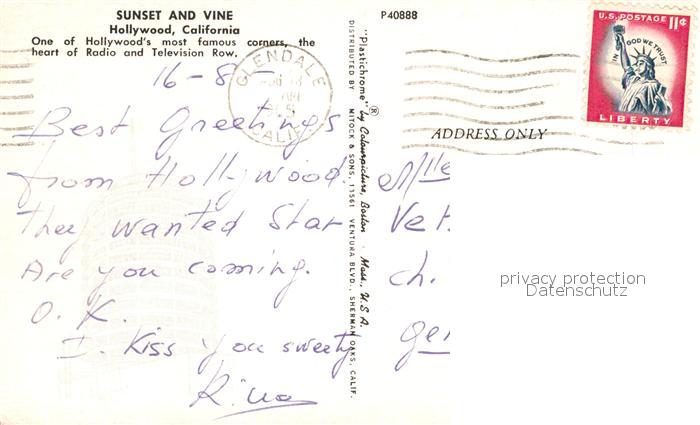 SUNSET AND VINE
Hollywood, California
One of Hollywood's most famous corners, the
heart of Radio and Television Row.
P40888
16-8-
GLENDALE
CALIF.
U.S. POSTAGE 11¢
IN GOD WE TRUST
LIBERTY
Best Greetings
from Hollywood
they wanted Star
Are you coming.
O.K.
I. Kiss you sweety
"Plastichrome"® by Colourpicture, Boston, Mass., U.S.A.
DISTRIBUTED BY MITOCK & SONS, 13561 VENTURA BLVD., SHERMAN OAKS, CALIF.
ADDRESS ONLY
Mlle
Vet
ch.
ger
privacy protection
Datenschutz